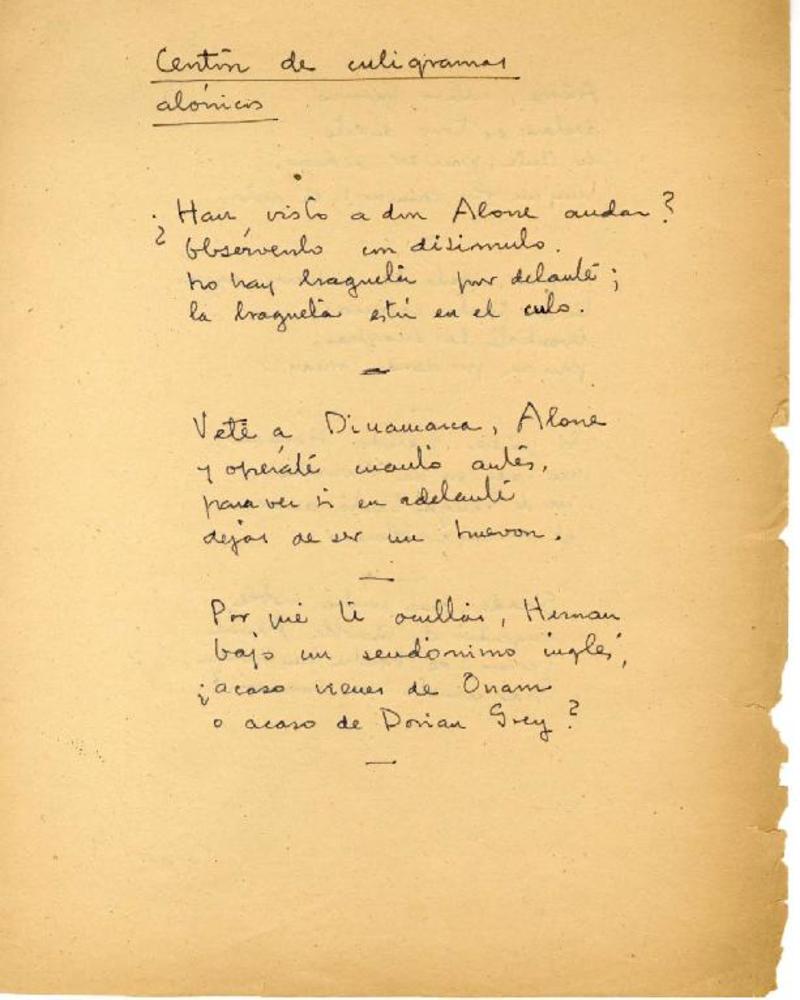 Centón de culigramas
alónicos
¿Han visto a don Alone andar?
Obsérvenlo con disimulo.
no hay bragueta por delante;
la bragueta está en el culo.
Vete a Dinamarca, Alone
y opérate cuanto antes,
para ver si en adelante
dejas de ser un huevon.
Por qué te ocultas, Hernan
bajo un seudónimo inglés,
¿acaso vienes de Onam
o acaso de Dorian Grey?